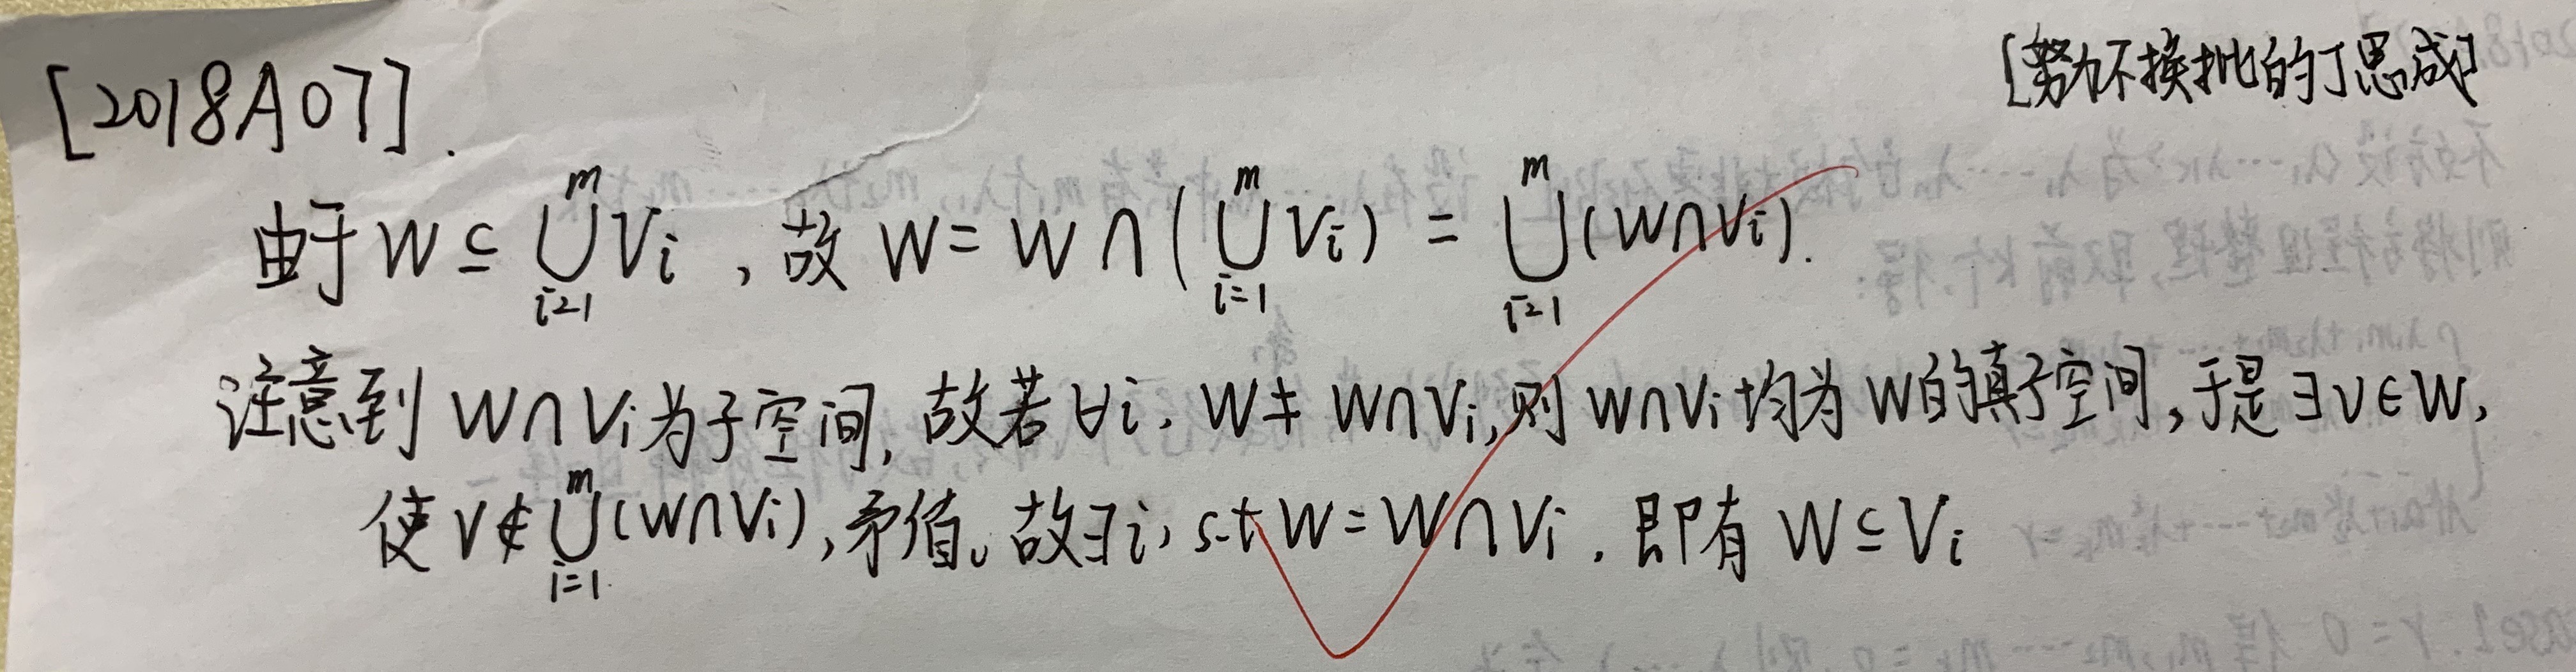 [努力不换批的丁思成]
[2018A07].
由于 W ⊆ ⋃_{i=1}^{m} V_i , 故 W = W ∩ ( ⋃_{i=1}^{m} V_i ) = ⋃_{i=1}^{m} (W∩V_i).
注意到 W∩V_i 为子空间, 故若 ∀i, W ≠ W∩V_i, 则 W∩V_i 均为 W 的真子空间, 于是 ∃ v ∈ W,
使 v ∉ ⋃_{i=1}^{m} (W∩V_i), 矛盾。故∃i, s.t W = W∩V_i . 即有 W ⊆ V_i